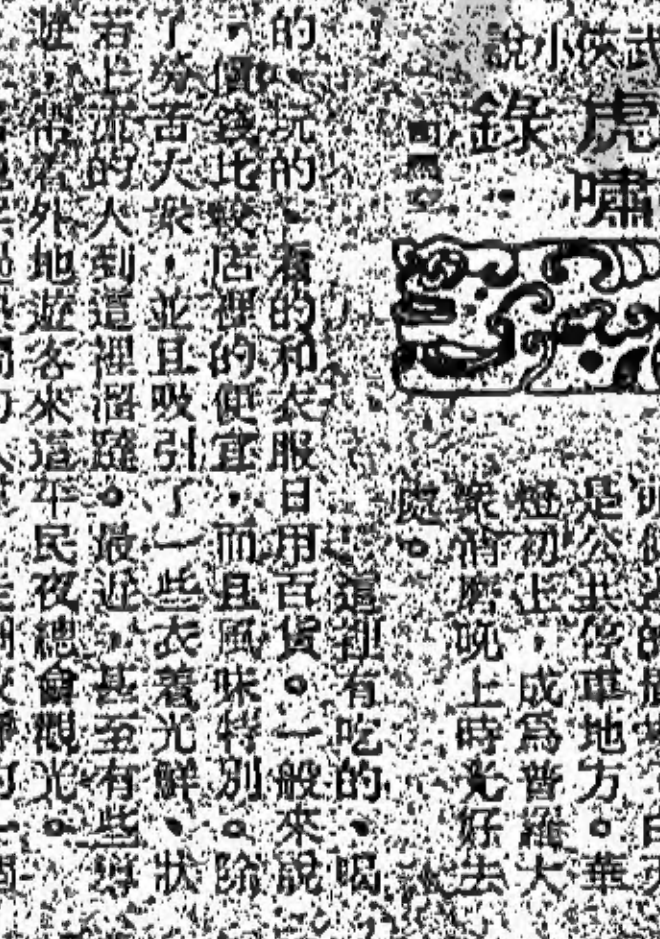 武俠小說
虎嘯
錄
是公共停車地方。華
燈初上,成爲普羅大
衆消磨晚上時光好去
處。
這裡有吃的、喝
的、玩的、看的和衣服日用百貨。一般來說
,價錢比較店裡的便宜,而且風味特別。除
了勞苦大衆,並且吸引了一些衣着光鮮、狀
若上流的人到這裡溜躂。最近,甚至有些導
遊,帶着外地遊客來這平民夜總會觀光。